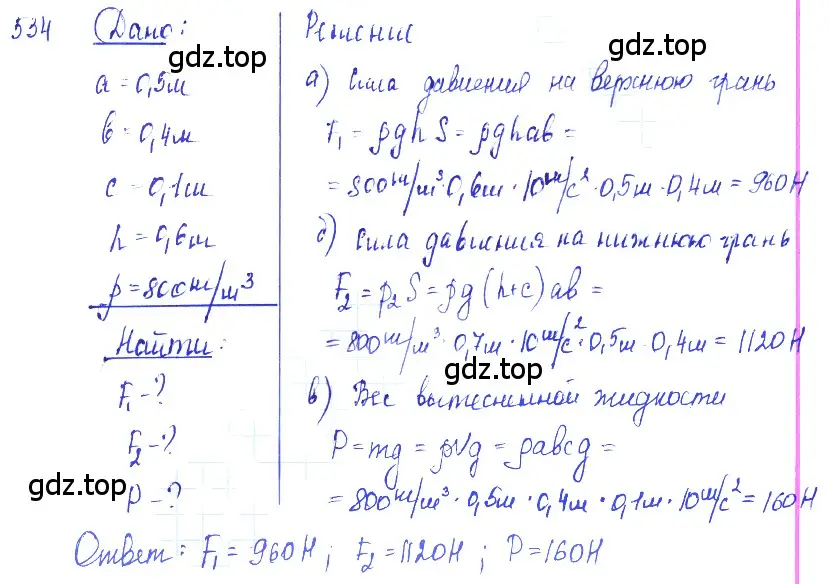 534 Дано:
gdz.top
a = 0,5м
b = 0,4м
c = 0,1м
h = 0,6м
ρ = 800кг/м³
Найти:
F₁ - ?
F₂ - ?
gdz.top
P - ?
Решение
gdz.top
а) Сила давления на верхнюю грань
F₁ = ρghS = ρghab =
= 800кг/м³·0,6м·10м/с²·0,5м·0,4м = 960Н
б) Сила давления на нижнюю грань
F₂ = p₂S = ρg(h+c)ab =
= 800кг/м³·0,7м·10м/с²·0,5м·0,4м = 1120Н
gdz.top
в) Вес вытесненной жидкости
P = mg = ρVg = ρabcg =
= 800кг/м³·0,5м·0,4м·0,1м·10м/с² = 160Н
Ответ: F₁ = 960Н; F₂ = 1120Н; P = 160Н
gdz.top